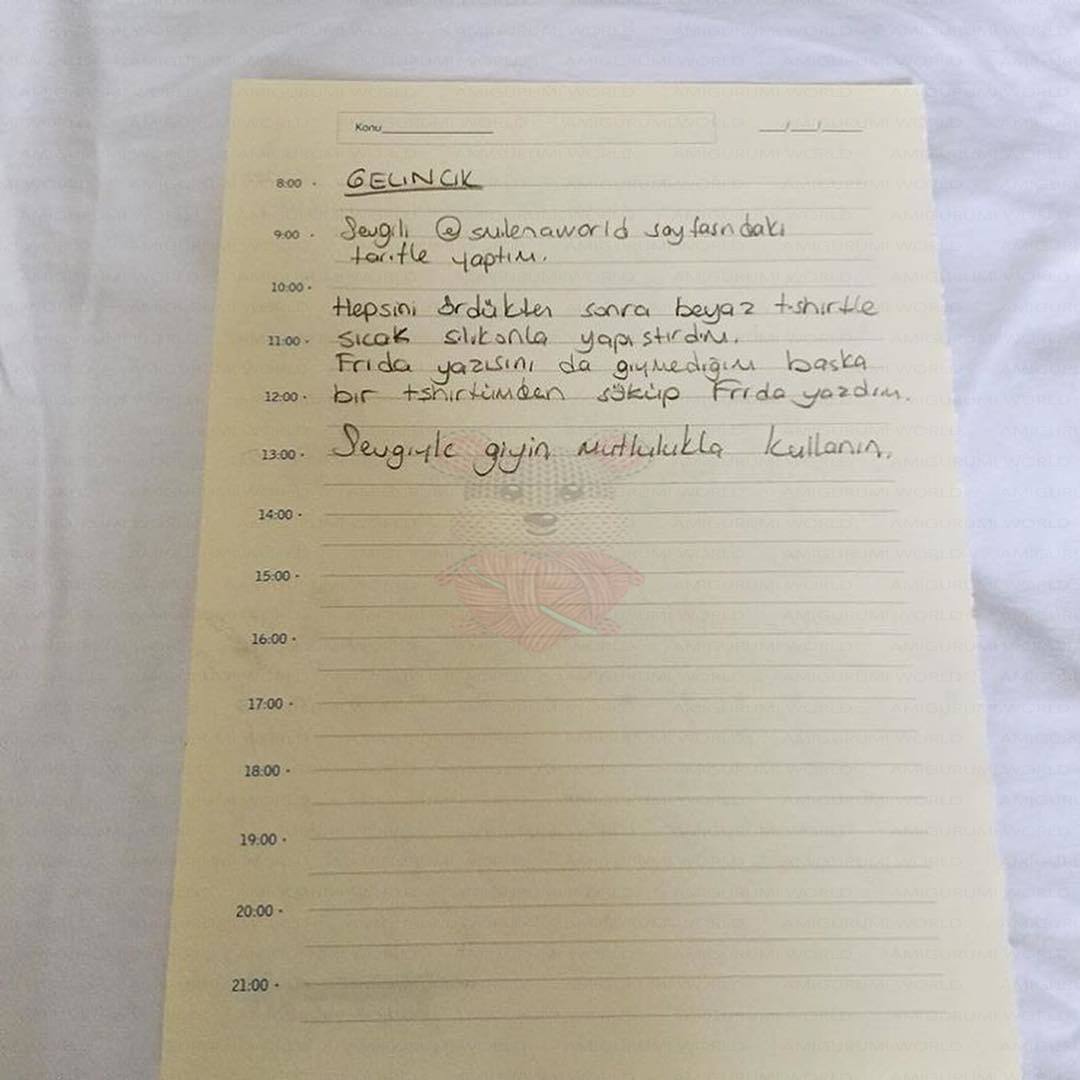 Konu
__/__/__
8:00 · GELİNCİK
9:00 · Sevgili @sulenaworld sayfasındaki
tarifle yaptım.
10:00 ·
Hepsini ördükten sonra beyaz t-shirtle
11:00 · sıcak silikonla yapıştırdım.
Frida yazısını da giymediğim başka
12:00 · bir tshirtümden söküp Frida yazdım.
13:00 · Sevgiyle giyin mutlulukla kullanın.
14:00 ·
15:00 ·
16:00 ·
17:00 ·
18:00 ·
19:00 ·
20:00 ·
21:00 ·
AMIGURUMI WORLD